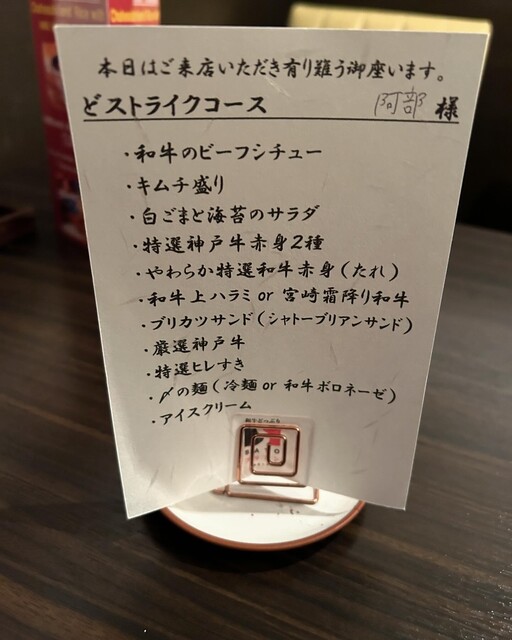 本日はご来店いただき有り難う御座います。
どストライクコース 阿部 様
・和牛のビーフシチュー
・キムチ盛り
・白ごまと海苔のサラダ
・特選神戸牛赤身2種
・やわらか特選和牛赤身（たれ）
・和牛上ハラミ or 宮崎霜降り和牛
・ブリカツサンド（シャトーブリアンサンド）
・厳選神戸牛
・特選ヒレすき
・〆の麺（冷麺 or 和牛ボロネーゼ）
・アイスクリーム